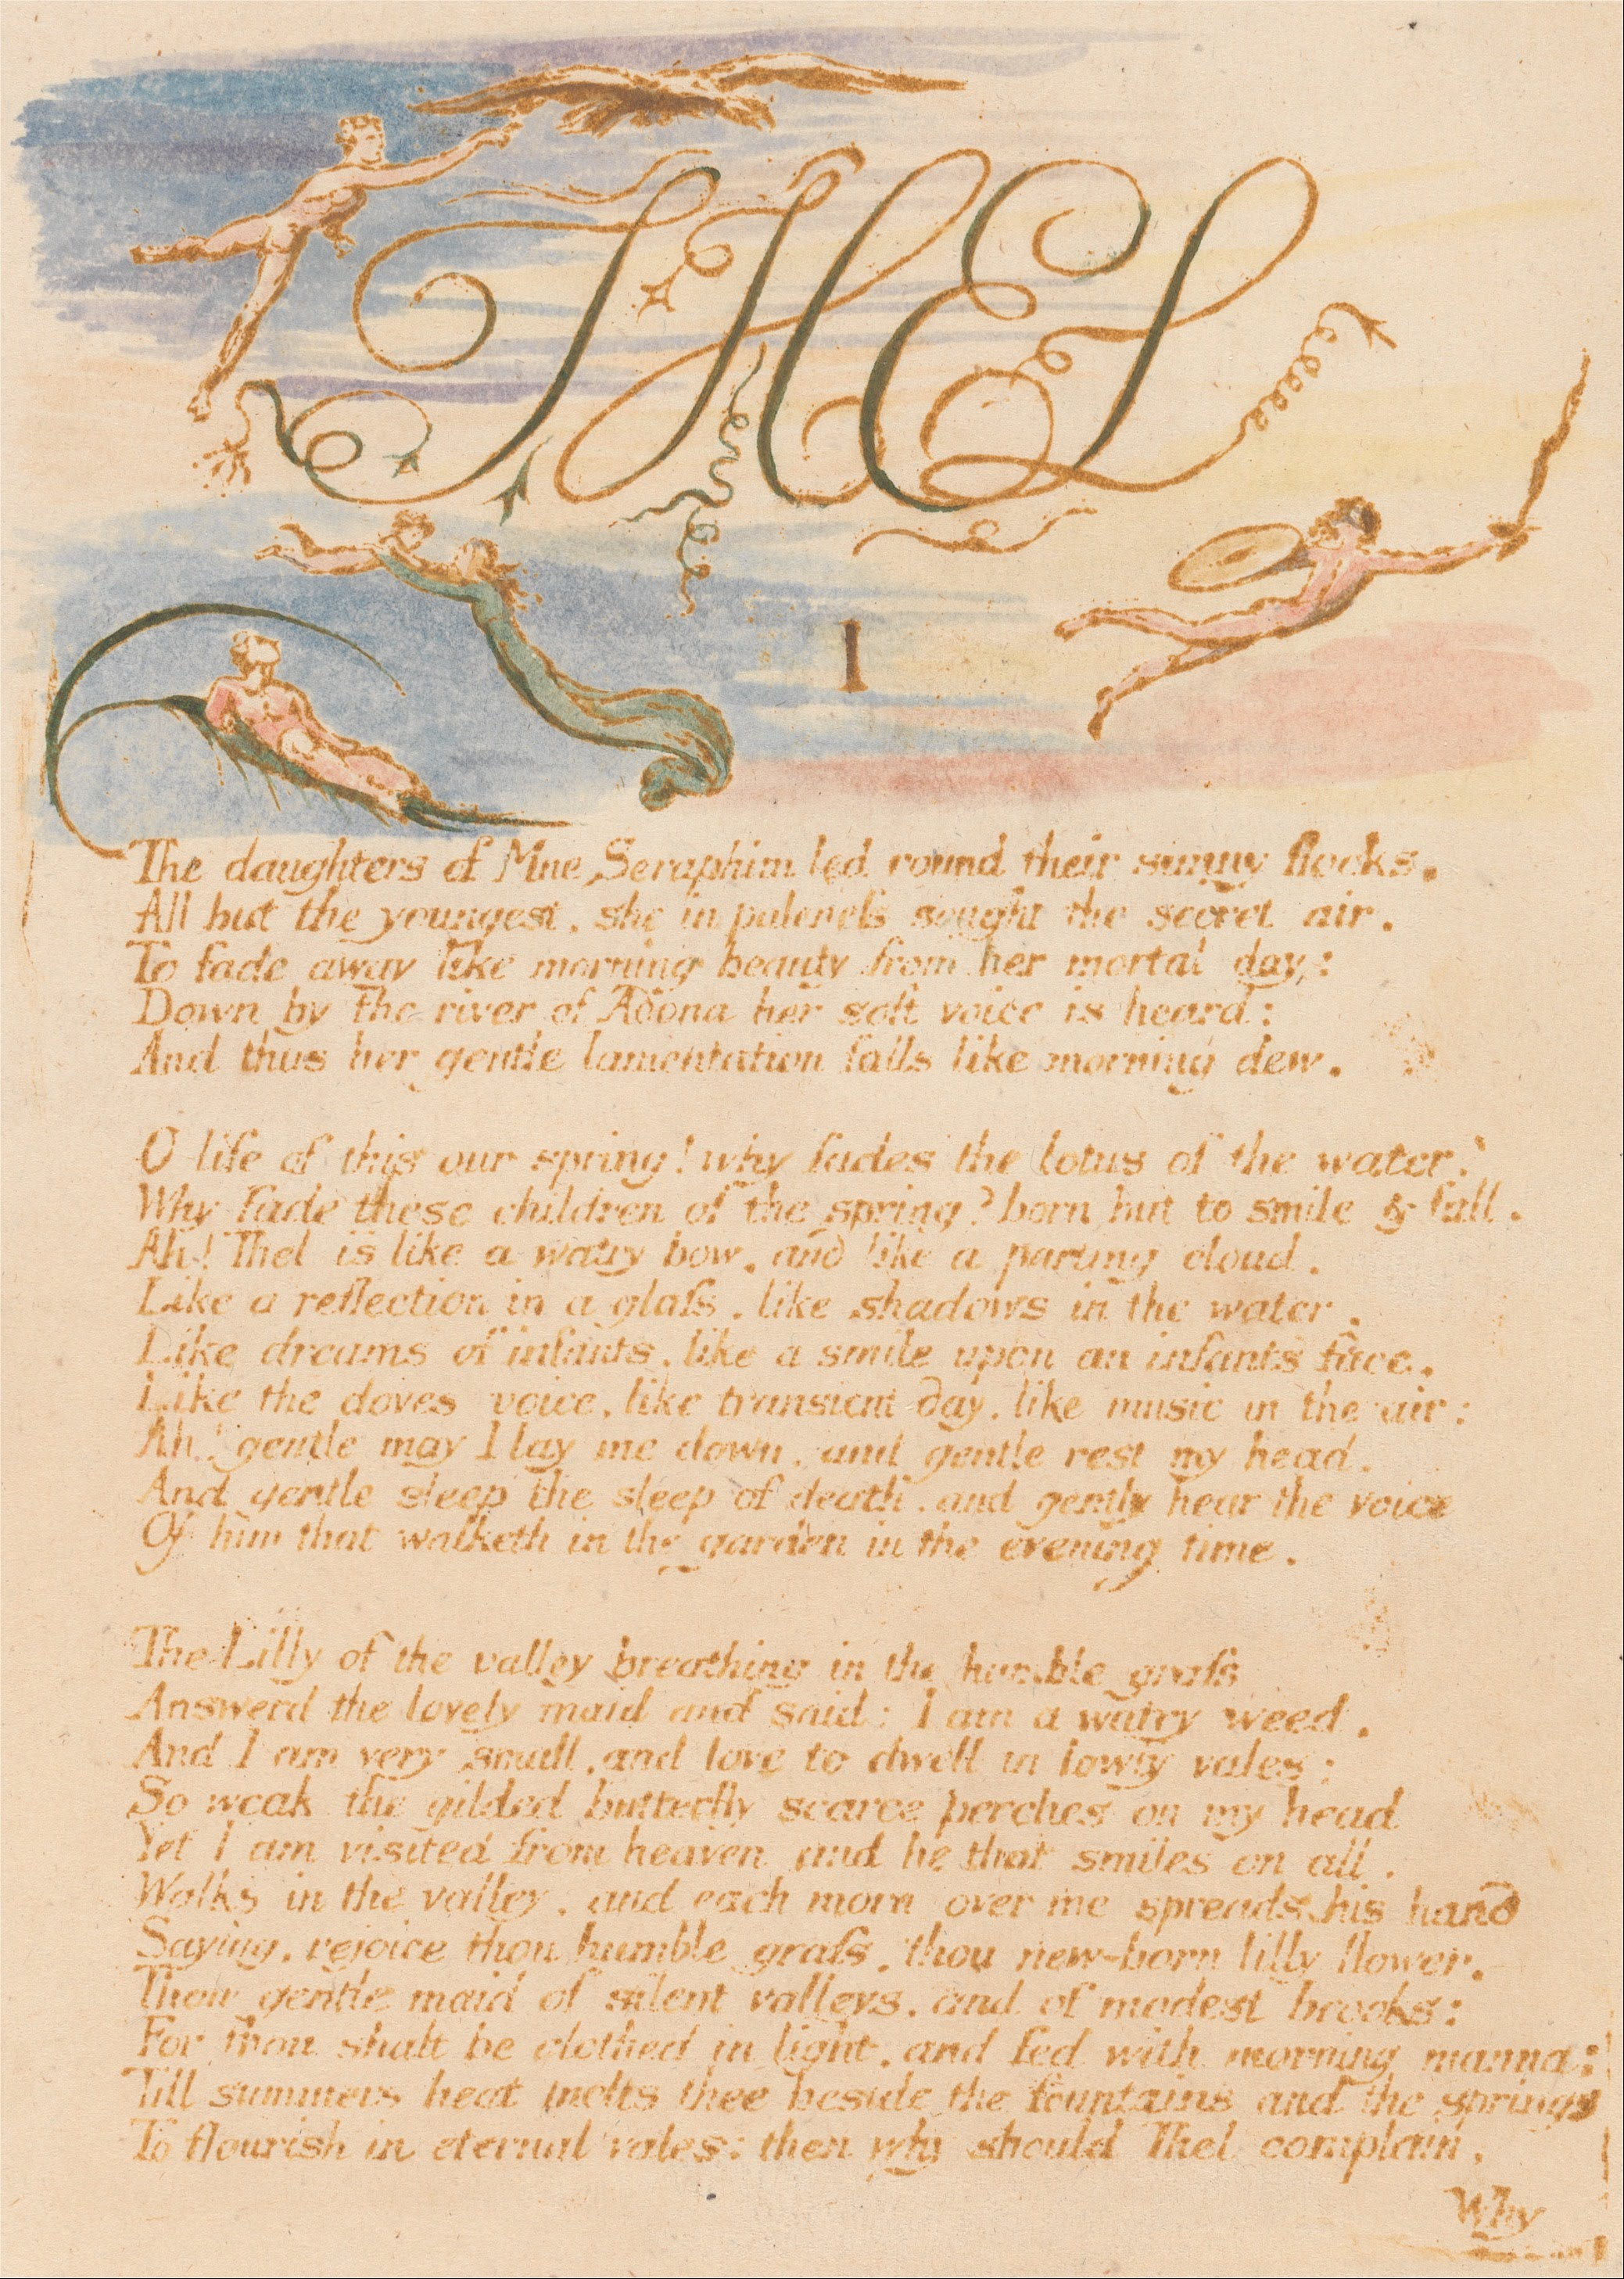 THEL
I
The daughters of Mne Seraphim led round their sunny flocks.
All but the youngest. she in paleness sought the secret air.
To fade away like morning beauty from her mortal day:
Down by the river of Adona her soft voice is heard:
And thus her gentle lamentation falls like morning dew.
O life of this our spring! why fades the lotus of the water?
Why fade these children of the spring? born but to smile & fall.
Ah! Thel is like a watry bow. and like a parting cloud.
Like a reflection in a glaſs. like shadows in the water.
Like dreams of infants. like a smile upon an infants face.
Like the doves voice, like transient day. like music in the air:
Ah! gentle may I lay me down, and gentle rest my head.
And gentle sleep the sleep of death. and gently hear the voice
Of him that walketh in the garden in the evening time.
The Lilly of the valley breathing in the humble graſs
Answerd the lovely maid and said: I am a watry weed.
And I am very small, and love to dwell in lowly vales:
So weak the gilded butterfly scarce perches on my head
Yet I am visited from heaven and he that smiles on all.
Walks in the valley. and each morn over me spreads his hand
Saying, rejoice thou humble graſs, thou new-born lilly flower.
Thou gentle maid of silent valleys. and of modest brooks:
For thou shalt be clothed in light, and fed with morning manna:
Till summers heat melts thee beside the fountains and the springs
To flourish in eternal vales: then why should Thel complain.
Why